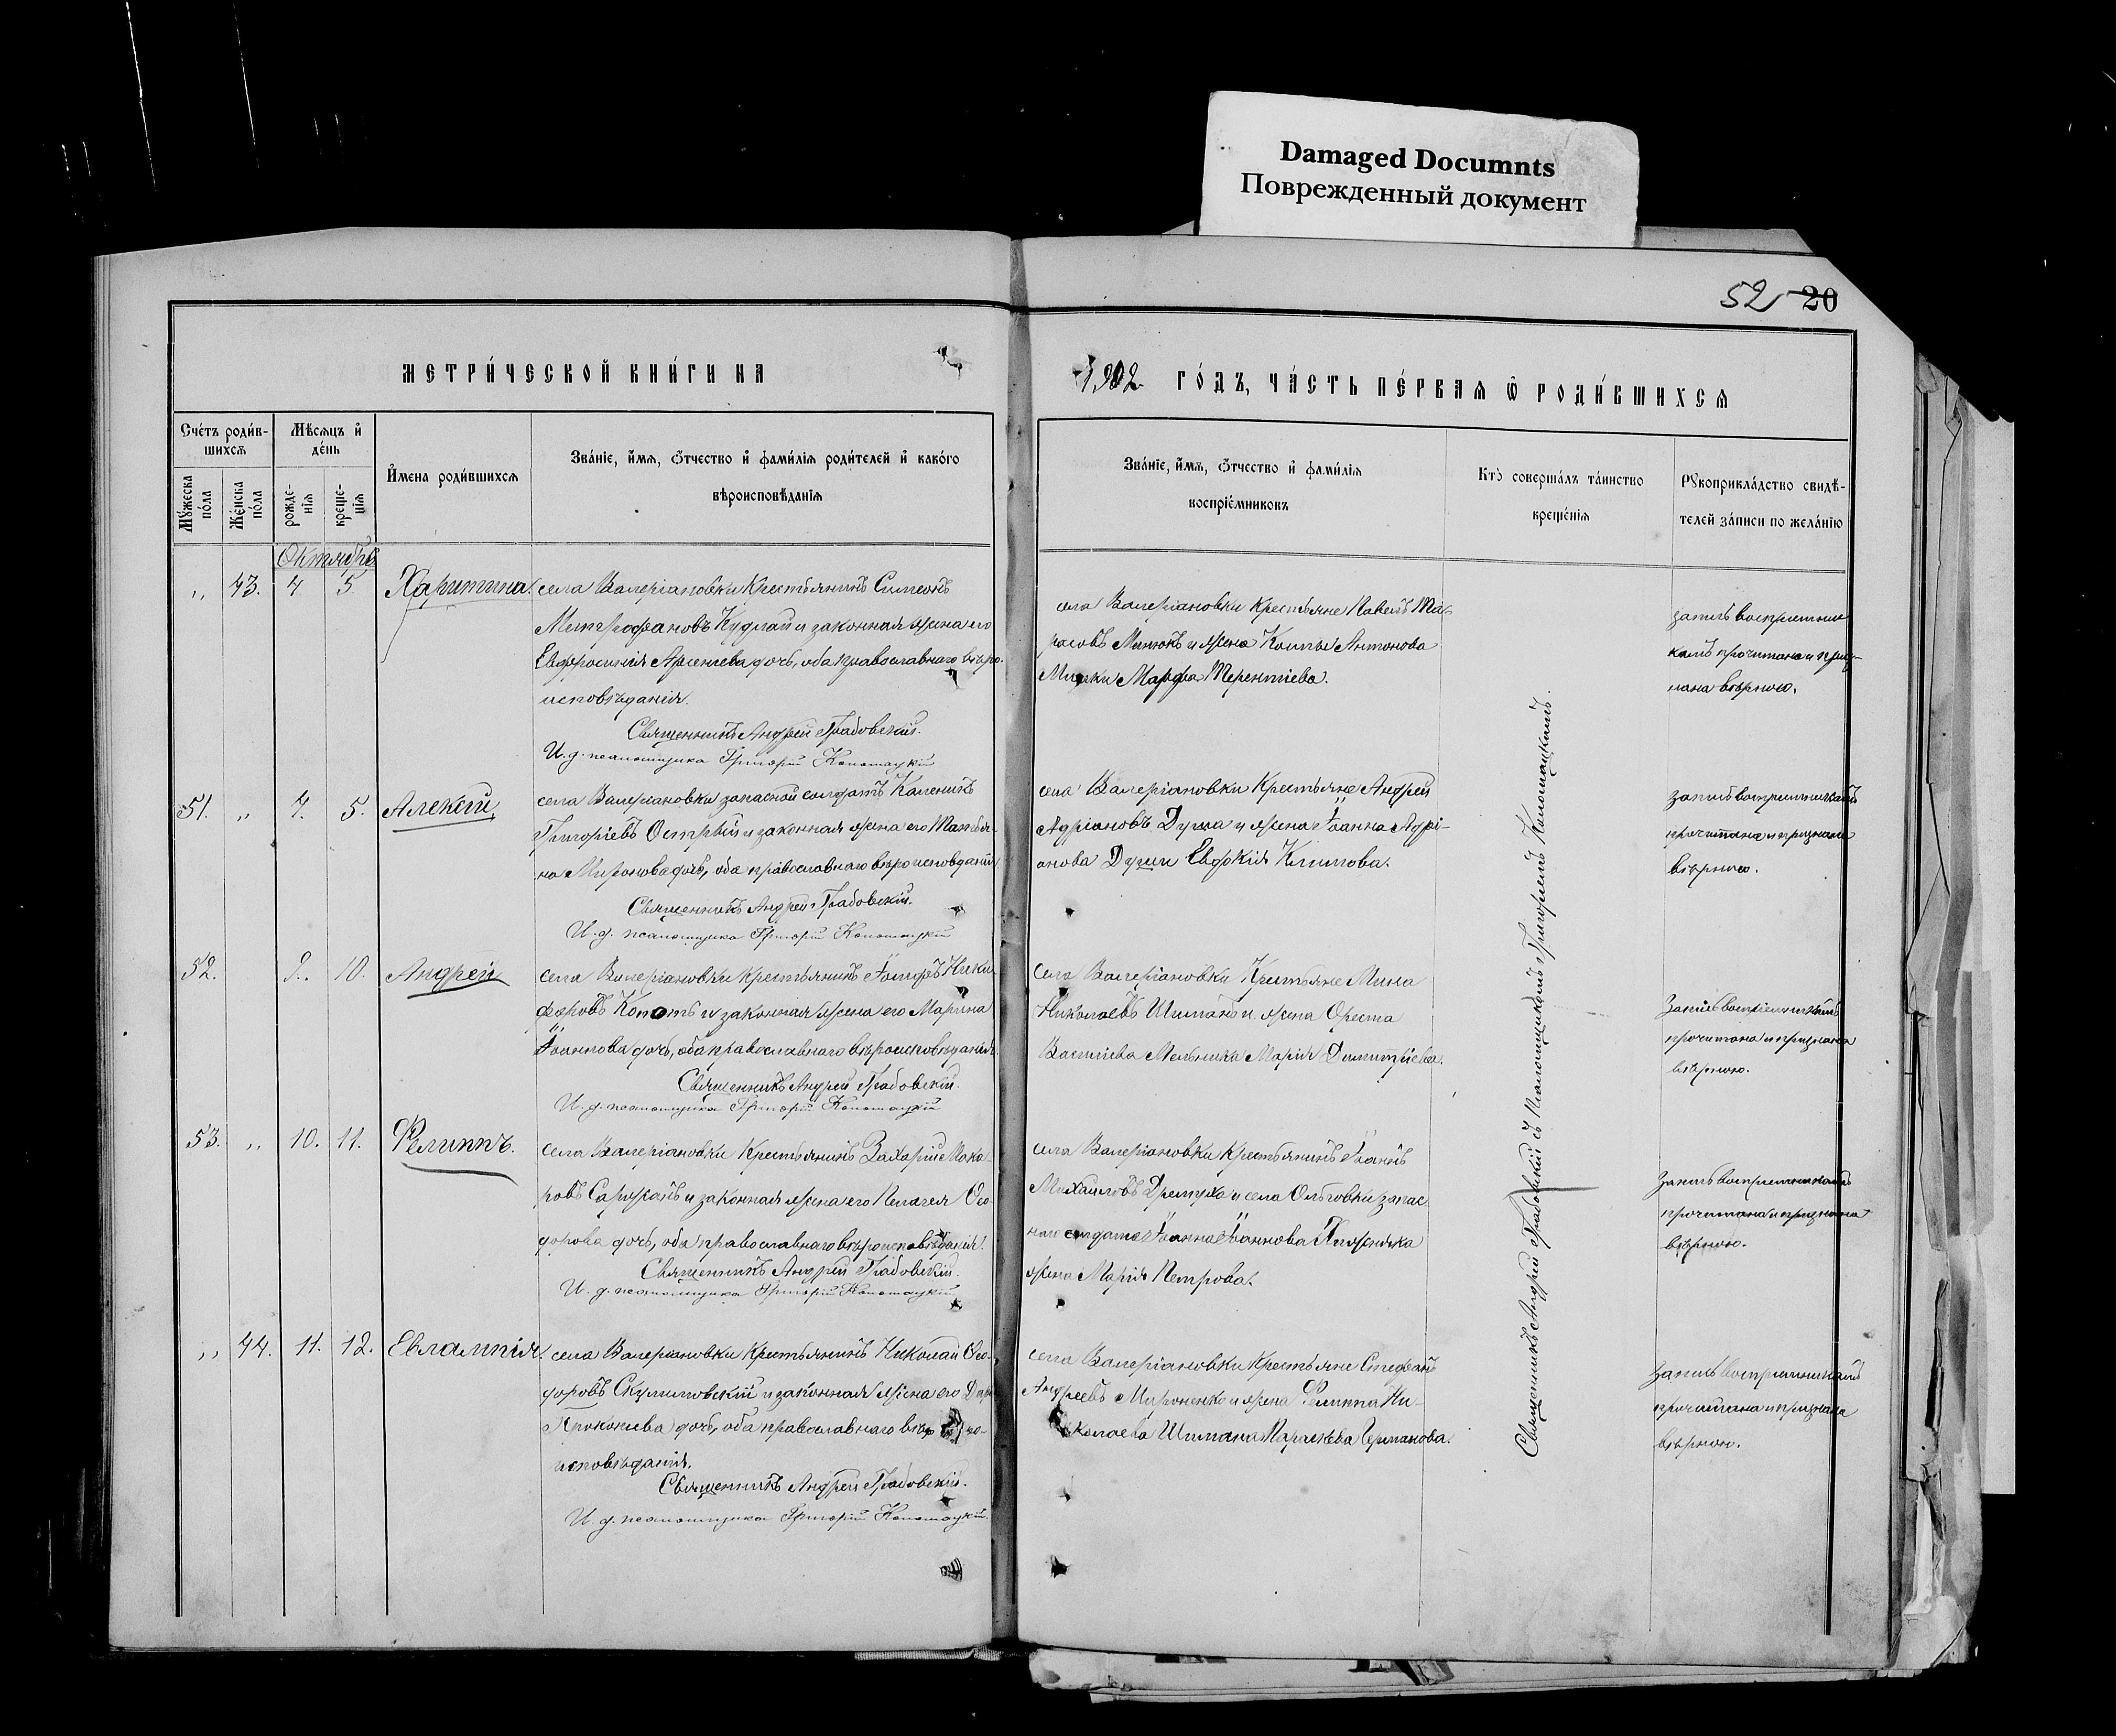 Damaged Documnts
Поврежденный документ
52 20
МЕТРИ́ЧЕСКОЙ КНИ́ГИ НА
1902. ГО́ДЪ, ЧА́СТЬ ПЕ́РВАЯ Ѿ РОДИ́ВШИХСЯ
Сче́тъ роди́в-
шихся
Мѣ́сяцъ и҆
де́нь
Мꙋ́жеска
по́ла
Же́нска
по́ла
рожде-
нїя
креще-
нїя
И҆мена роди́вшихся
Зва́нїе, и҆́мя, ѻ҆́тчество и҆ фами́лїя роди́телей и҆ како́гѡ
вѣроисповѣ́данїя
Зва́нїе, и҆́мя, ѻ҆́тчество и҆ фами́лїя
воспрїе́мниковъ
Кто̀ соверша́лъ та́инство
креще́нїя
Рꙋкоприкла́дство свидѣ́-
телей за́писи по жела́нїю
Октябрь
„ 43. 4 5 Харитина.
села Валеріановки Крестьянинъ Симеонъ
Митрофановъ Кудлай и законная жена его
Евфросинія Арсеніева дочь, оба православнаго вѣро-
исповѣданія.
Священникъ Андрей Грабовскій.
И. д. псаломщика Григорій Копотацкій
села Валеріановки Крестьяне Павелъ
Антонова
Марфа Терентіева.
запись воспріемни
камъ прочитана и приз-
нана вѣрною.
51. „ 4. 5. Алексій,
села Валеріановки запасной солдатъ Каленикъ
Григоріевъ Острый и законная жена его Татья-
на Миронова дочь, оба православнаго вѣроисповѣданія
Священникъ Андрей Грабовскій.
И. д. псаломщика Григорій Копотацкій
села Валеріановки Крестьяне Андрей
Адріановъ Душа и жена Іоанна Адрі-
анова Души Евдокія Климова.
запись воспріемникамъ
прочитана и признана
вѣрною.
52. 9. 10. Андрей
села Валеріановки крестьянинъ Іосифъ Ники
форовъ Копоть и законная жена его Марина
Іоаннова дочь, оба православнаго вѣроисповѣданія.
Священникъ Андрей Грабовскій.
И. д. псаломщика Григорій Копотацкій
Села Валеріановки Крестьяне Мина
Николаевъ Шиманъ и жена Ореста
Васильева Мельника Марія Димитріева.
Запись воспріемникамъ
прочитана и признана
вѣрною.
53. „ 10. 11. Филиппъ.
села Валеріановки Крестьянинъ Захарій Мака-
ровъ Саржанъ и законная жена его Пелагея Ѳео
дорова дочь, оба православнаго вѣроисповѣданія.
Священникъ Андрей Грабовскій.
И. д. псаломщика Григорій Копотацкій
села Валеріановки Крестьянинъ Іоаннъ
Михаиловъ Дремуха и села Ольговки запас
наго солдата Іоанна Іоаннова
жена Марія Петрова.
Запись воспріемникамъ
прочитана и признана
вѣрною.
„ 44. 11. 12. Евлампія.
села Валеріановки Крестьянинъ Николай Ѳео-
доровъ и законная жена его
Прокопіева дочь, оба православнаго вѣро-
исповѣданія.
Священникъ Андрей Грабовскій.
И. д. псаломщика Григорій Копотацкій.
села Валеріановки Крестьяне Стефанъ
Андреевъ Мироненко и жена Филиппа Ни-
колаева Шимана Параскева Германова.
запись воспріемникамъ
прочитана и признана
вѣрною.
Священникъ Андрей Грабовскій съ Псаломщикомъ Григоріемъ Копотацкимъ.